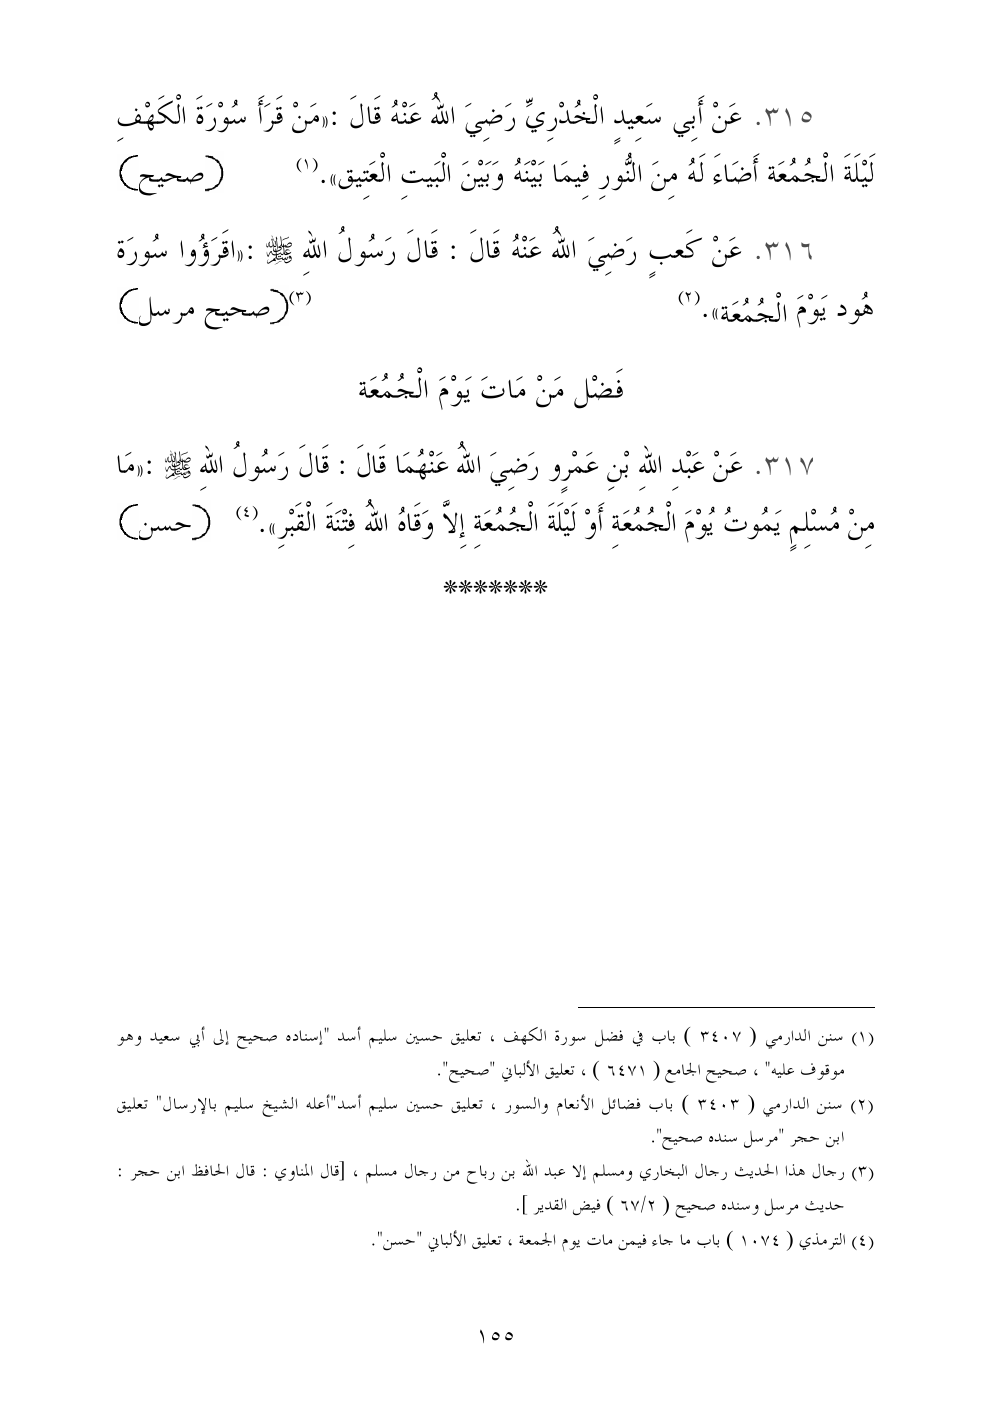 ٣١٥. عَنْ أَبِي سَعِيدٍ الْخُدْرِيِّ رَضِيَ اللهُ عَنْهُ قَالَ :«مَنْ قَرَأَ سُوْرَةَ الْكَهْفِ
لَيْلَةَ الْجُمُعَة أَضَاءَ لَهُ مِنَ النُّورِ فِيمَا بَيْنَهُ وَبَيْنَ الْبَيتِ الْعَتِيق».(١) (صحيح)
٣١٦. عَنْ كَعبٍ رَضِيَ اللهُ عَنْهُ قَالَ : قَالَ رَسُولُ اللهِ ﷺ :«اقَرَؤُوا سُورَة
هُود يَوْمَ الْجُمُعَة».(٢) (صحيح مرسل)(٣)
فَضْل مَنْ مَاتَ يَوْمَ الْجُمُعَة
٣١٧. عَنْ عَبْدِ اللهِ بْنِ عَمْرٍو رَضِيَ اللهُ عَنْهُمَا قَالَ : قَالَ رَسُولُ اللهِ ﷺ :«مَا
مِنْ مُسْلِمٍ يَمُوتُ يُوْمَ الْجُمُعَةِ أَوْ لَيْلَةَ الْجُمُعَةِ إِلاَّ وَقَاهُ اللهُ فِتْنَةَ الْقَبْرِ».(٤) (حسن)
*******
(١) سنن الدارمي ( ٣٤٠٧ ) باب في فضل سورة الكهف ، تعليق حسين سليم أسد "إسناده صحيح إلى أبي سعيد وهو
موقوف عليه" ، صحيح الجامع ( ٦٤٧١ ) ، تعليق الألباني "صحيح".
(٢) سنن الدارمي ( ٣٤٠٣ ) باب فضائل الأنعام والسور ، تعليق حسين سليم أسد"أعله الشيخ سليم بالإرسال" تعليق
ابن حجر "مرسل سنده صحيح".
(٣) رجال هذا الحديث رجال البخاري ومسلم إلا عبد الله بن رباح من رجال مسلم ، [قال المناوي : قال الحافظ ابن حجر :
حديث مرسل وسنده صحيح ( ٦٧/٢ ) فيض القدير ].
(٤) الترمذي ( ١٠٧٤ ) باب ما جاء فيمن مات يوم الجمعة ، تعليق الألباني "حسن".
١٥٥